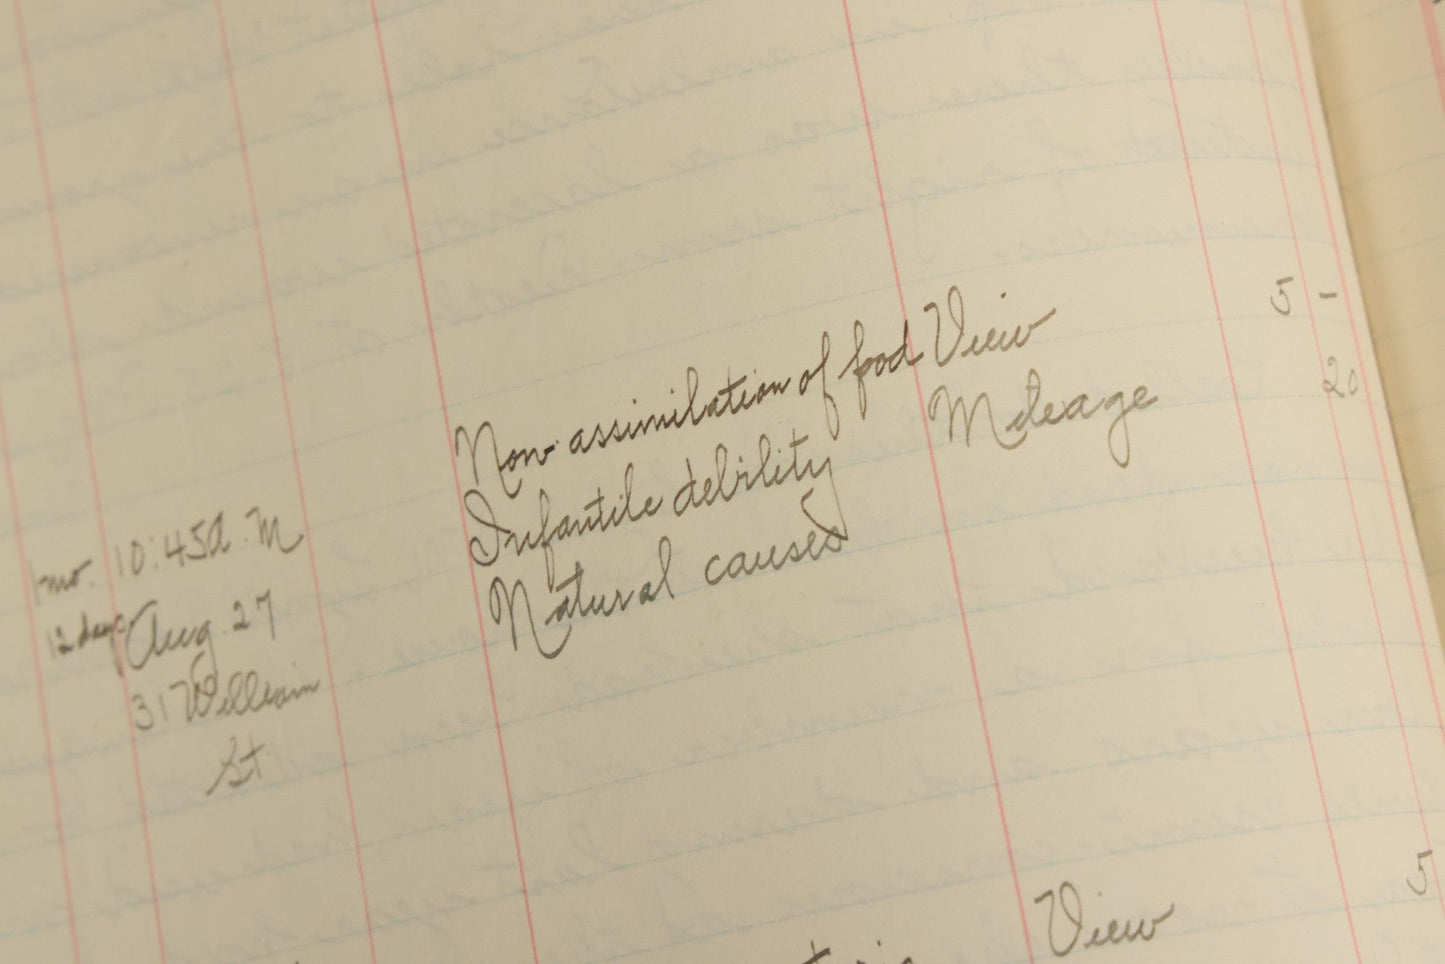 Non-assimilation of food View 5 -
Infantile debility Mileage 20
Natural causes
mo. 10:45 A.M
12 days Aug. 27
317 William
St
View 5